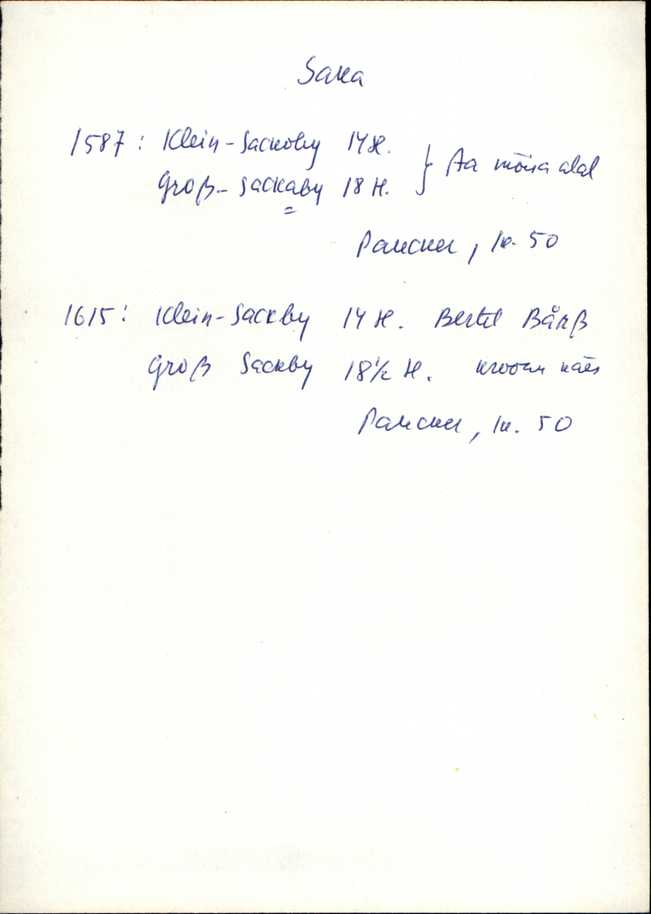 Saka
1587: Klein-Sackoby 14 H. } Aa mõisa alal
Groß-Sackaby 18 H.
Paucker, lk. 50
1615: Klein-Sackby 14 H. Bertil Bånß
Groß Sackby 18 1/2 H. kroonu käes
Paucker, lk. 50